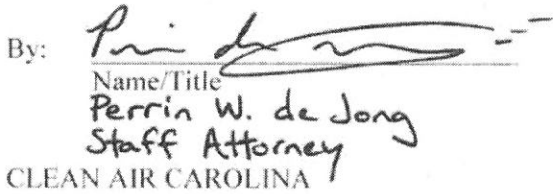 By:
Name/Title
Perrin W. de Jong
Staff Attorney
CLEAN AIR CAROLINA